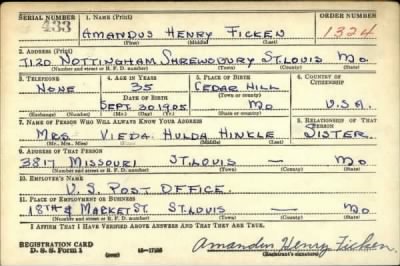 SERIAL NUMBER 1. NAME (Print) ORDER NUMBER
433 AMANDUS HENRY FICKEN 1324
(First) (Middle) (Last)
2. ADDRESS (Print)
7120 NOTTINGHAM SHREWSBURY ST. LOUIS MO.
(Number and street or R. F. D. number) (Town) (County) (State)
3. TELEPHONE 4. AGE IN YEARS 5. PLACE OF BIRTH 6. COUNTRY OF CITIZENSHIP
NONE 35 CEDAR HILL
DATE OF BIRTH (Town or county)
SEPT. 30 1905 MO U.S.A.
(Exchange) (Number) (Mo.) (Day) (Yr.) (State or country)
7. NAME OF PERSON WHO WILL ALWAYS KNOW YOUR ADDRESS 8. RELATIONSHIP OF THAT PERSON
MRS VIEDA HULDA HINKLE SISTER.
(Mr., Mrs., Miss) (First) (Middle) (Last)
9. ADDRESS OF THAT PERSON
3817 MISSOURI ST. LOUIS — MO
(Number and street or R. F. D. number) (Town) (County) (State)
10. EMPLOYER'S NAME
U. S. POST OFFICE.
11. PLACE OF EMPLOYMENT OR BUSINESS
18TH & MARKET ST. ST. LOUIS — MO
(Number and street or R. F. D. number) (Town) (County) (State)
I AFFIRM THAT I HAVE VERIFIED ABOVE ANSWERS AND THAT THEY ARE TRUE.
REGISTRATION CARD
D. S. S. Form 1 (over) Amandus Henry Ficken
(Registrant's signature)